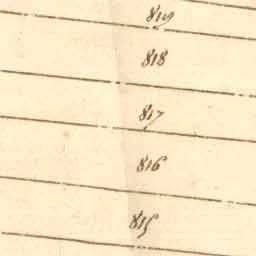 819
818
817
816
815